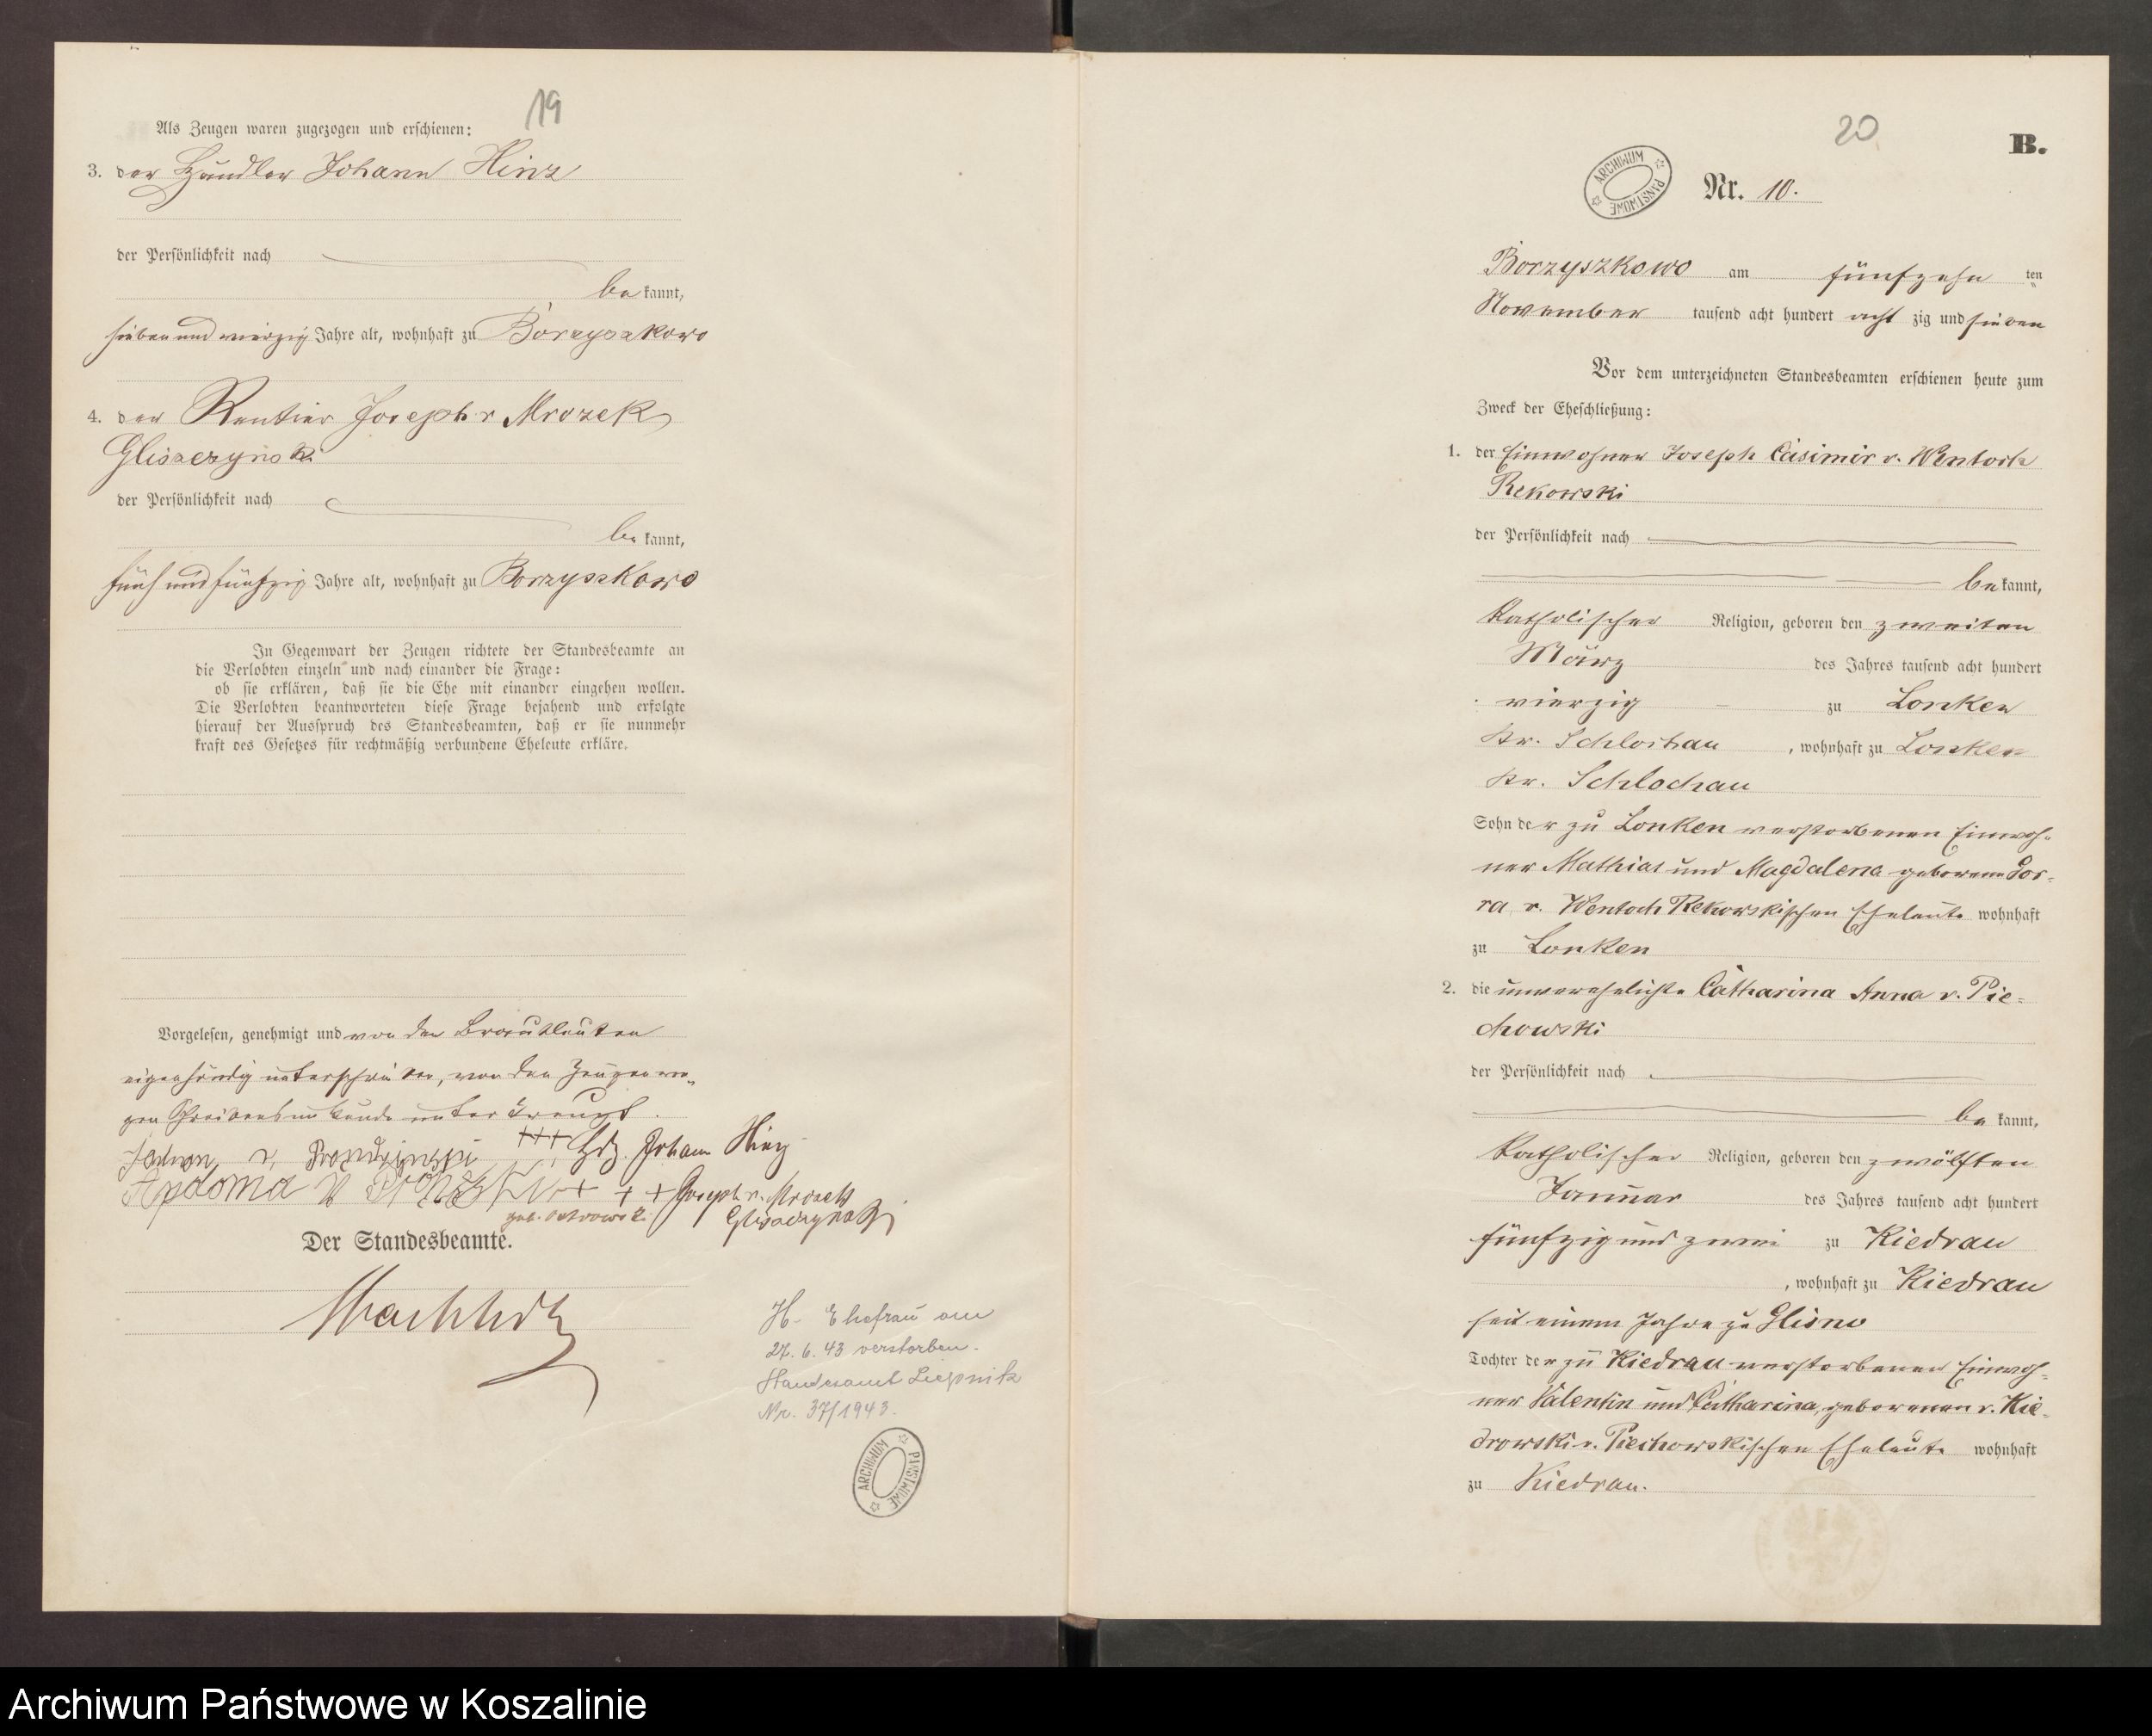 19
Als Zeugen waren zugezogen und erschienen:
3. der Händler Johann Hinz
der Persönlichkeit nach
be kannt,
sieben und vierzig Jahre alt, wohnhaft zu Borzyszkowo
4. der Rentier Joseph v Mrozek
Gliszczynski
der Persönlichkeit nach
be kannt,
fünf und fünfzig Jahre alt, wohnhaft zu Borzyszkowo
In Gegenwart der Zeugen richtete der Standesbeamte an
die Verlobten einzeln und nach einander die Frage:
ob sie erklären, daß sie die Ehe mit einander eingehen wollen.
Die Verlobten beantworteten diese Frage bejahend und erfolgte
hierauf der Ausspruch des Standesbeamten, daß er sie nunmehr
kraft des Gesetzes für rechtmäßig verbundene Eheleute erkläre.
Vorgelesen, genehmigt und von den Brautleuten
eigenhändig unterschrieben, von den Zeugen we-
gen Schreibensunkunde unterkreuzt.
v. +++ Hdz. Johann Hinz
+++ Joseph v. Mrozek
geb. Gliszczynski
Der Standesbeamte.
H. Ehefrau am
27. 6. 43 verstorben.
Standesamt Liepnitz
Nr. 37/1943.
ARCHIWUM PAŃSTWOWE
20
B.
ARCHIWUM PAŃSTWOWE
Nr. 10.
Borzyszkowo am fünfzehn ten
November tausend acht hundert acht zig und sieben
Vor dem unterzeichneten Standesbeamten erschienen heute zum
Zweck der Eheschließung:
1. der Einwohner Joseph Casimir v. Wentoch
Rekowski
der Persönlichkeit nach
be kannt,
katholischer Religion, geboren den zweiten
März des Jahres tausend acht hundert
vierzig zu Lonken
Kr. Schlochau, wohnhaft zu Lonken
Kr. Schlochau
Sohn der zu Lonken verstorbenen Einwoh-
ner Mathias und Magdalena geborene
v. Wentoch Rekowskischen Eheleute wohnhaft
zu Lonken
2. die unverehelichte Catharina Anna v. Pie-
chowski
der Persönlichkeit nach
be kannt,
katholischer Religion, geboren den zwölften
Januar des Jahres tausend acht hundert
fünfzig und zwei zu Kiedrau
, wohnhaft zu Kiedrau
seit einem Jahre zu Glisno
Tochter der zu Kiedrau verstorbenen Einwoh-
ner Valentin und Catharina, geborenen v. Kie-
drowski v. Piechowskischen Eheleute wohnhaft
zu Kiedrau.
Archiwum Państwowe w Koszalinie